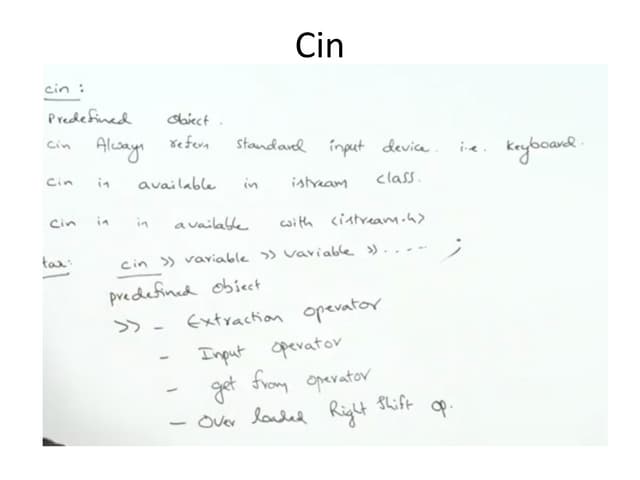 Cin
cin :
Predefined object.
cin Always refers standard input device. i.e. keyboard.
cin is available in istream class.
cin is in available with <istream.h>
tax: cin >> variable >> variable >> ---- ;
predefined object
>> - Extraction operator
- Input operator
- get from operator
- Over loaded Right shift op.